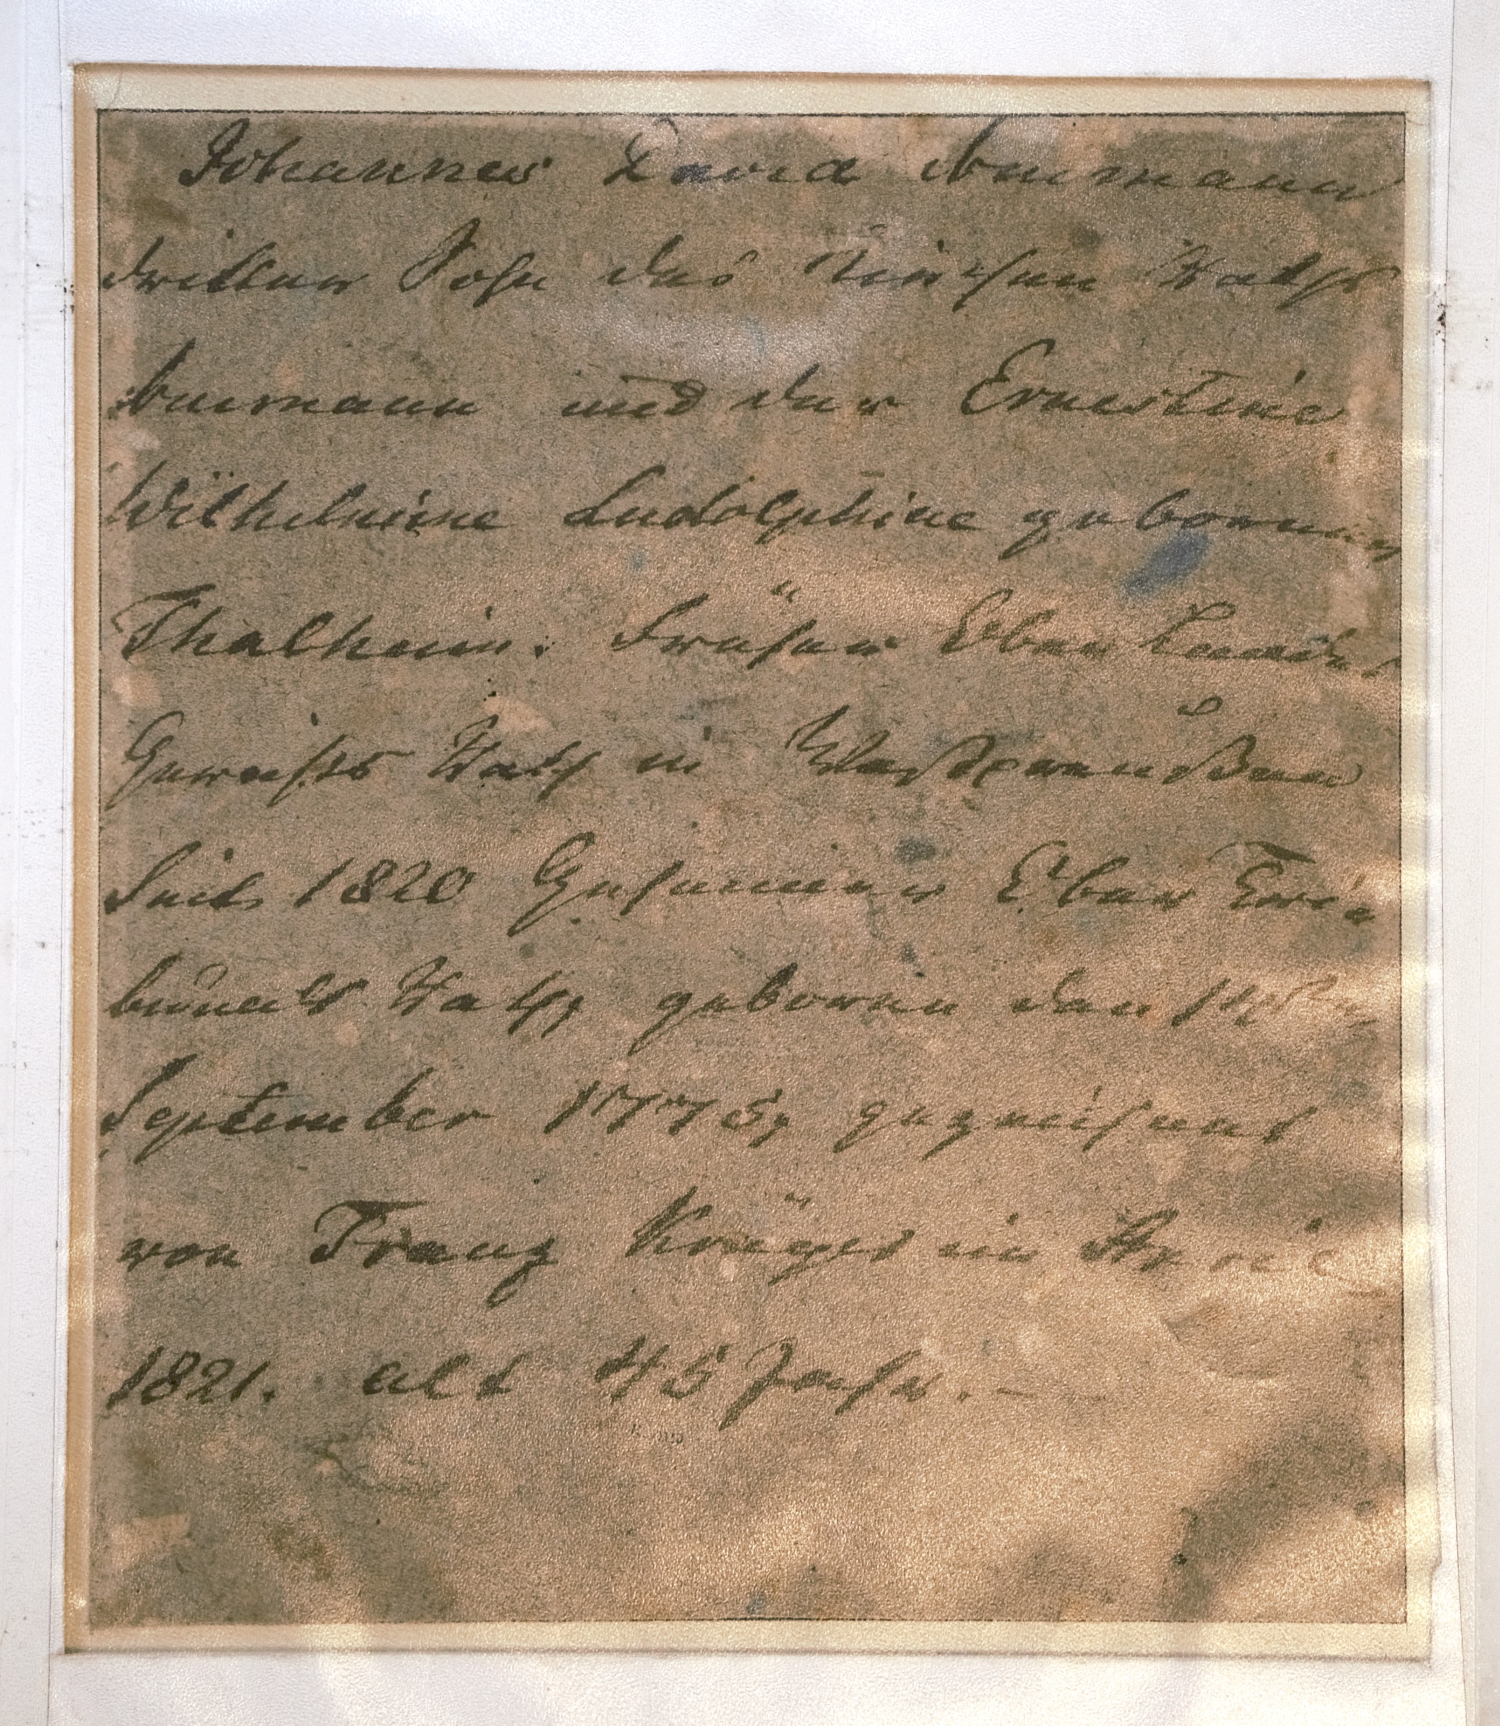 Johannes David Neumann
dritter Sohn des Kirchen Raths
Neumann und der Ernestine
Wilhelmine Ludolphine geborenen
Thalheim. Früher Ober Landes
Gerichts Rath in Westpreußen
seit 1820 Geheimer Ober Tri
bunals Rath, geboren den 14ten
September 1775, gezeichnet
von Franz Krüger im
1821. alt 45 Jahr. –